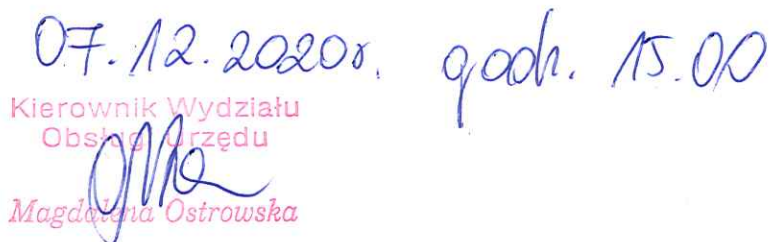 07.12.2020r. godz. 15.00
Kierownik Wydziału
Obsługi Urzędu
Magdalena Ostrowska